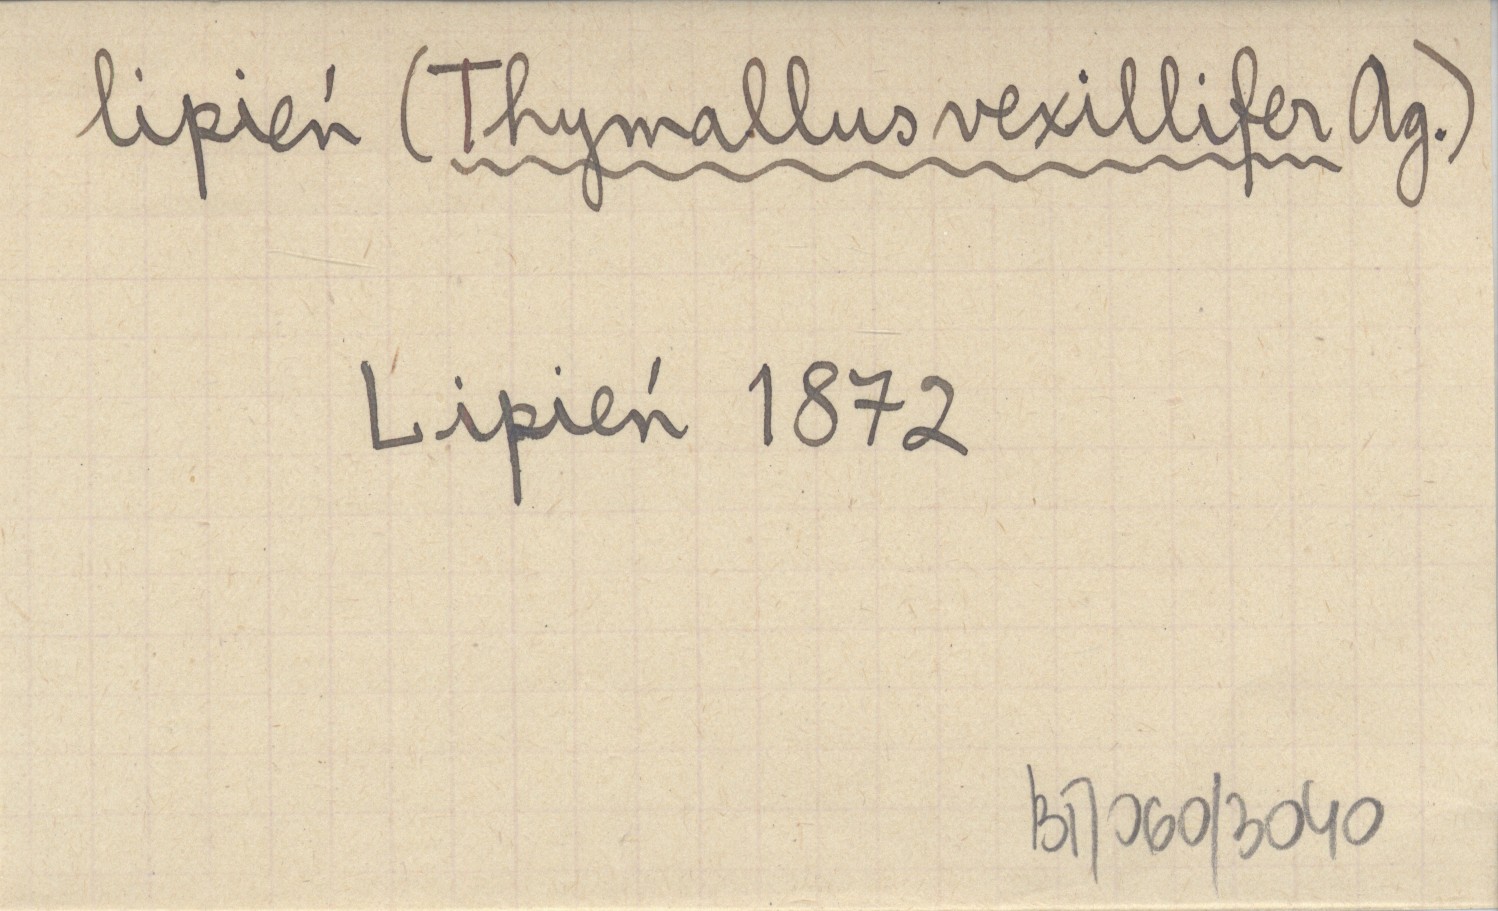 lipień (Thymallus vexillifer Ag.)
Lipień 1872
BT/060/3040